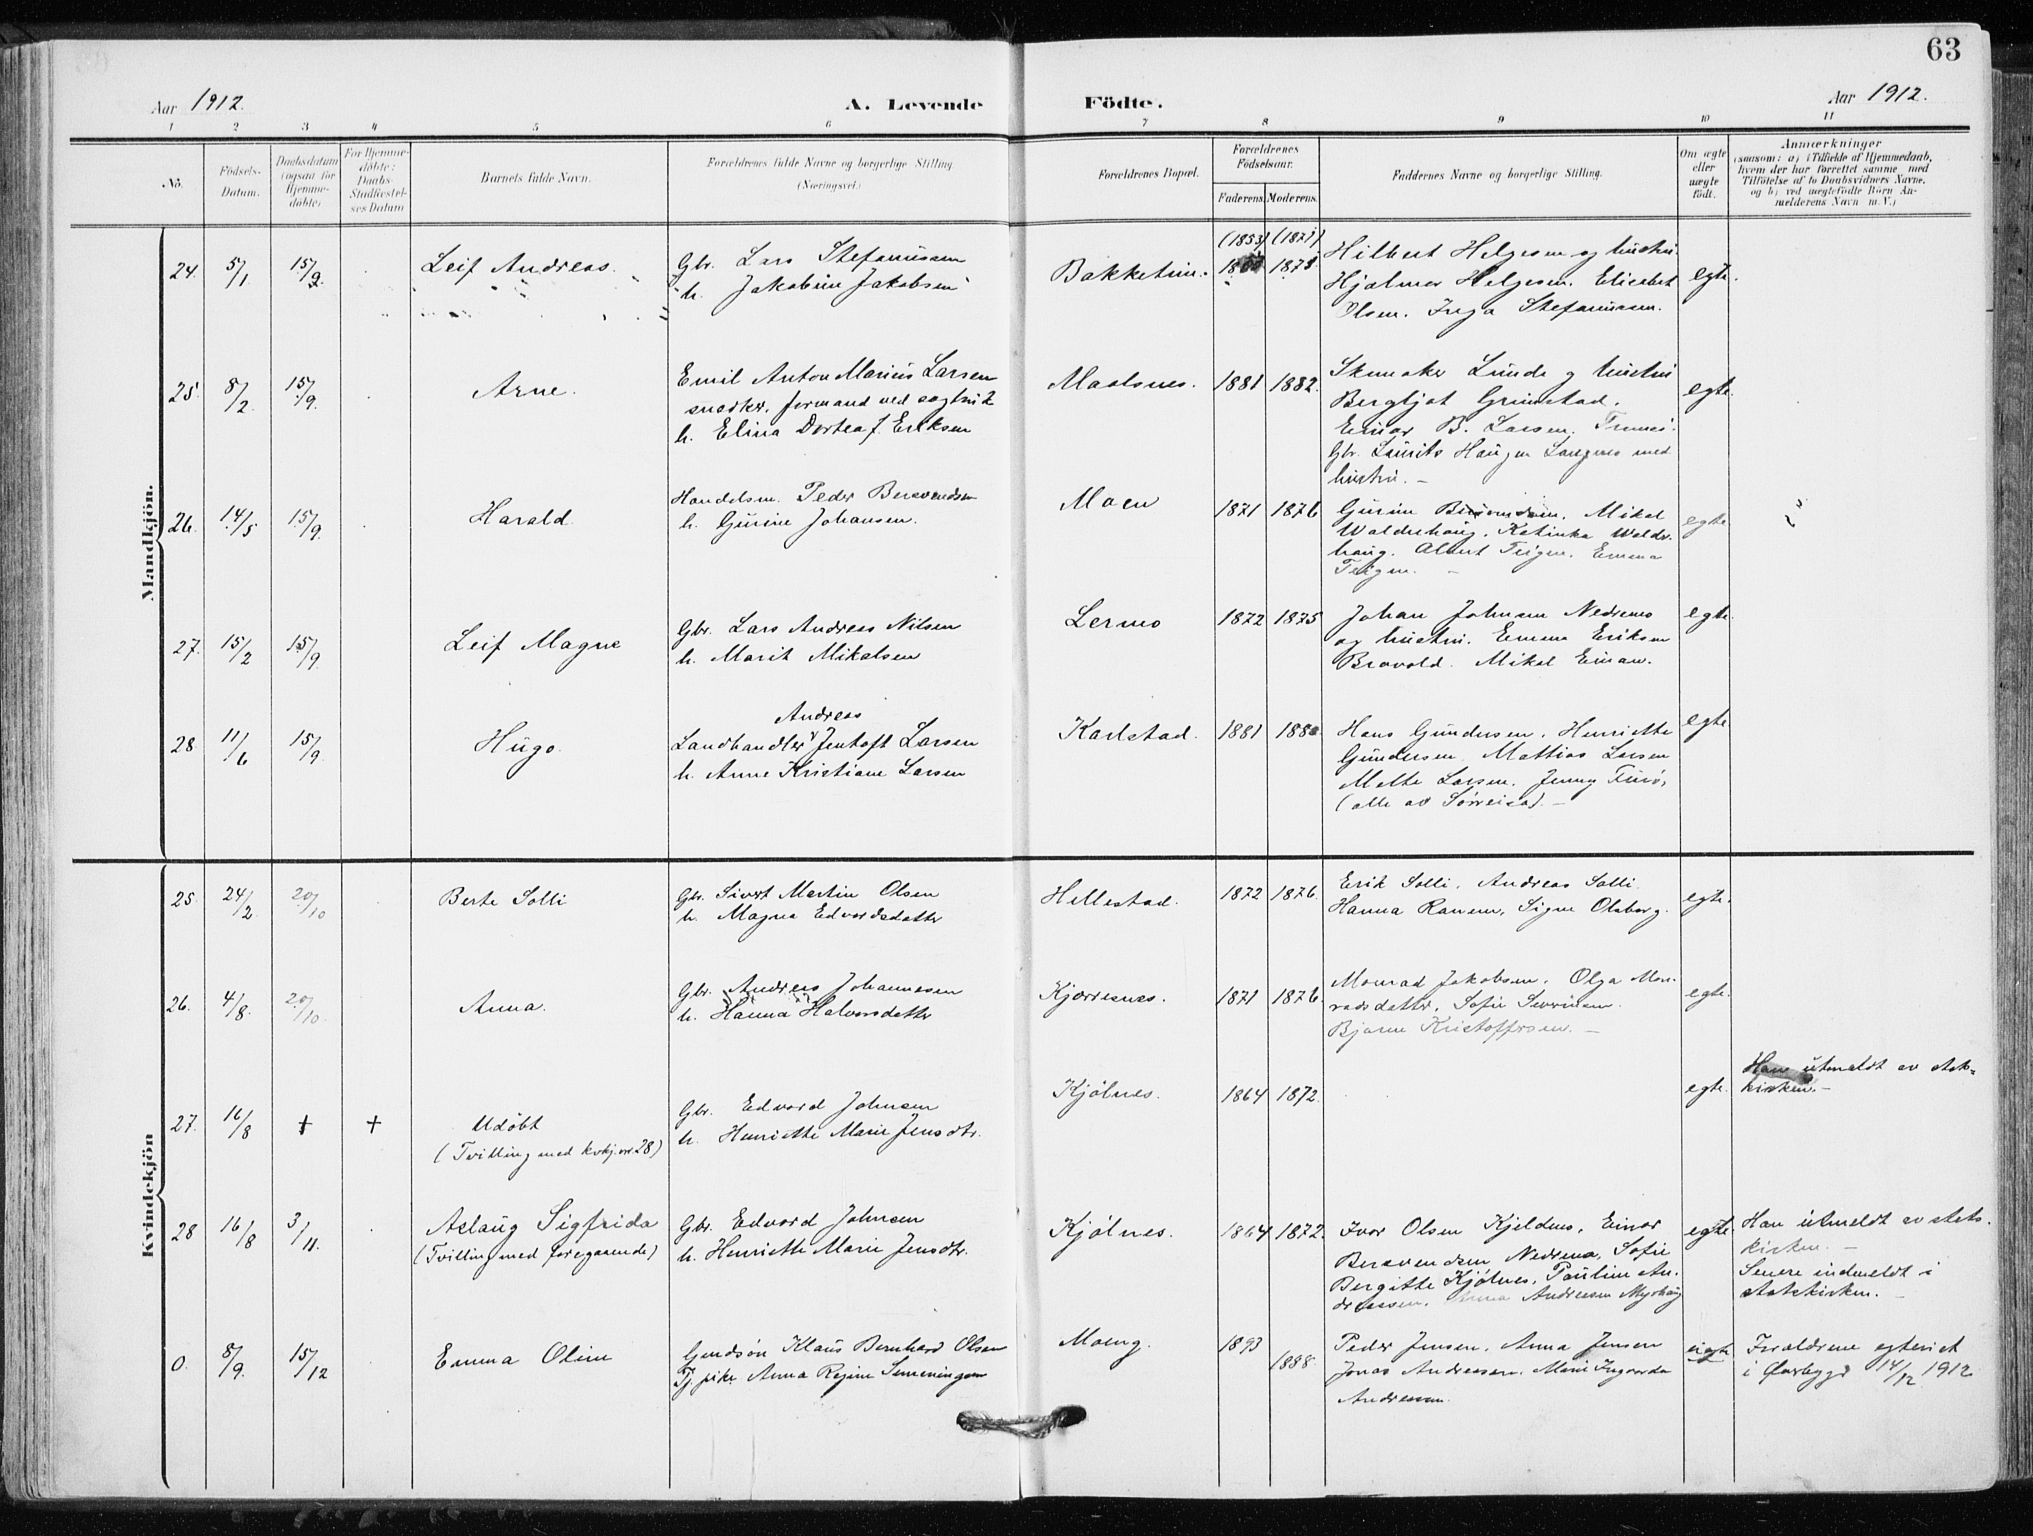 63
Aar 1912.
A. Levende
Födte.
Aar 1912.
1 2 3 4 5 6 7 8 9 10 11
No.
Födsels-Datum.
Daabsdatum (ogsaa for Hjemme-döbte)
For Hjemme-döbte: Daabs-Stadfæstel-ses Datum
Barnets fulde Navn.
Forældrenes fulde Navne og borgerlige Stilling
(Næringsvei.)
Forældrenes Bopæl.
Forældrenes Födselsaar.
Faderens. Moderens.
Faddernes Navne og borgerlige Stilling.
Om ægte eller uægte födt.
Anmærkninger
(saasom: a) i Tilfælde af Hjemmedaab,
hvem der har forrettet samme, med
Tilföielse af to Daabsvidners Navne,
og b) ved uægtefödte Börn An-
melderens Navn m. V.)
Mandkjön.
24. 5/1 15/9. Leif Andreas.
Gbr. Lars Stefanussen
h. Jakobine Jakobsen
Bakketun.
(1853) (1871)
1875.
Hilbert Helgesen og hustru
Hjalmar Helgesen. Elisabet
Olsen. Inga Stefanussen.
egte.
25. 8/2. 15/9. Arne.
Emil Anton Marius Larsen
snedker, formand ved sagbruk
h. Elina Dortea J. Eriksen
Maalsnes. 1881 1882.
Skomaker Lunde og hustru
Bergljot Grimstad.
Einar B. Larsen.
Gbr. Laurits Haugen Langnes med
hustru. –
egte.
26. 14/5 15/9. Harald.
Handelsm. Peder Bersvendsen
h. Gurine Johansen.
Moen 1871 1876
Gurine Mikal
Walderhaug, Katinka Walder-
haug. Albert Teigen. Emma
Teigen. –
egte.
27. 15/2 15/9 Leif Magne
Gbr. Lars Andreas Nilsen
h. Marit Mikalsen
Lermo 1872 1875
Johan Johnsen Nedremo
og hustru. Emma Eriksen
Bravold. Mikal Einan.
egte.
28. 11/6 15/9. Hugo.
Andreas
Landhandler Jentoft Larsen
h. Anne Kristiane Larsen
Karlstad. 1881
Hans Gundersen. Henriette
Gundersen. Mathias Larsen
Larsen. Jenny Furö,
(alle av Sörreisa). –
egte.
Kvindekjön
25. 24/2. 20/10 Berte Solli
Gbr. Sivert Martin Olsen
h. Magna Edvardsdatter
Hellestad. 1872 1876.
Erik Solli, Andreas Solli.
Hanna Ranem, Signe Olsborg.
egte.
26. 4/8. 20/10. Anna.
Gbr. Andreas Johannesen
h. Hanna Halvorsdatter
Kjærresnes. 1871 1876.
Monrad Jakobsen, Olga Mon-
radsdatter, Sofie Severinsen.
Bjarne Kristoffersen. –
egte.
27. 16/8 + + Udöbt
(Tvilling med kvkj. nr. 28)
Gbr. Edvard Johnsen
h. Henriette Marie Jensdtr.
Kjölnes. 1864 1872.
egte.
Han utmeldt av stats-
kirken. –
28 16/8 3/11. Aslaug Sigfrida
(Tvilling med foregaaende)
Gbr. Edvard Johnsen
h. Henriette Marie Jensdtr.
Kjölnes. 1864 1872.
Ivar Olsen Kjeldnes, Einar
Bersvendsen Nedremo, Sofie
Bergitte Kjölnes, Pauline An-
dreassen, Anna Andreasen Myrhaug
egte.
Han utmeldt av stats-
kirken. –
Senere indmeldt i
statskirken.
0. 8/9. 15/12 Emma Oline
Gaardsön Klaus Bernhard Olsen
Tj. pike Anna Regine Simeningsen
Moeng. 1893 1888.
Peder Jensen, Anna Jensen
Jonas Andreassen. Marie Ingvarda
Andreassen.
Forældrene egteviet
i Överbygd 14/12 1912